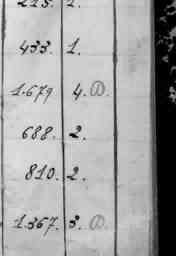 433. 1.
1.679 4.
688. 2.
810. 2.
1.367. 3.